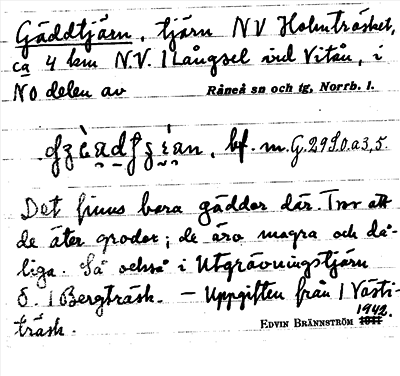 Gäddtjärn, tjärn NV Holmträsket,
ca 4 km N.V. Långsel vid Vitån, i
NO delen av Råneå sn och tg, Norrb. l.
bf. m. G. 2980. a 3, 5.
Det finns bara gäddor där. Tror att
de äter grodor; de äro magra och då-
liga. Så också i Utgrävningstjärn
ö. Bergträsk. – Uppgiften från Västi-
träsk.
EDVIN BRÄNNSTRÖM 1942.